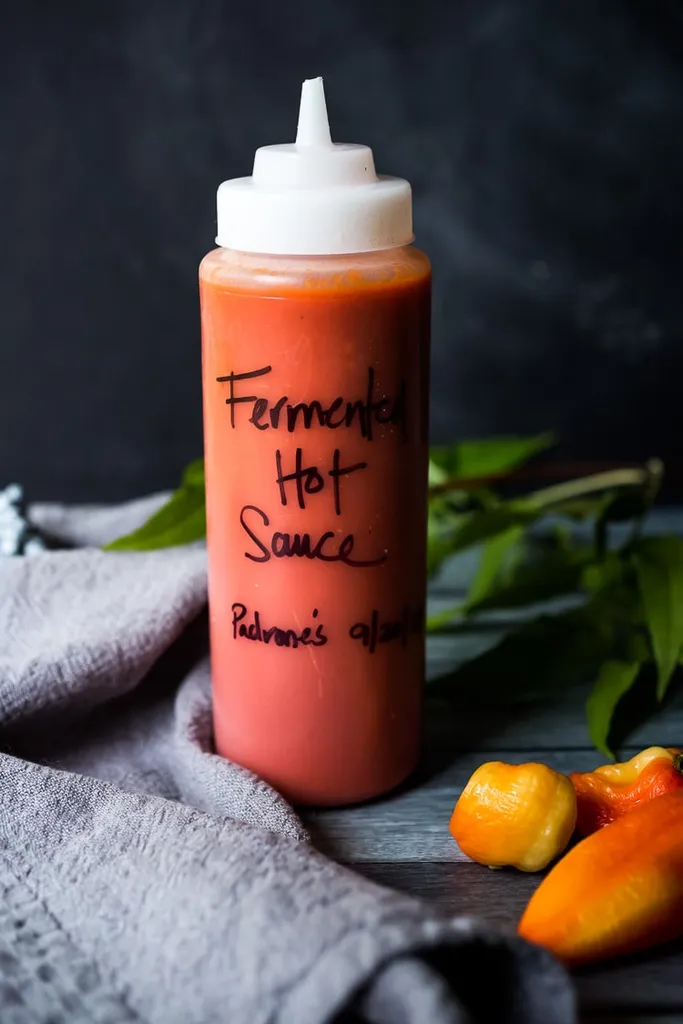 Fermented
Hot
Sauce
Padrone's